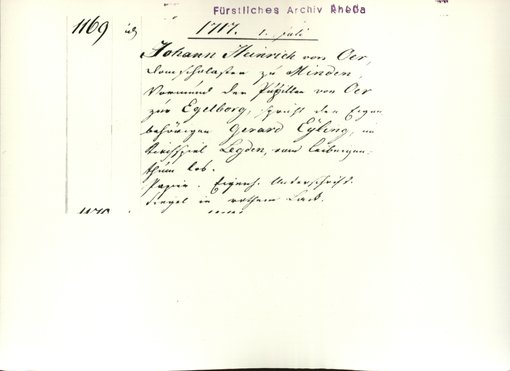 Fürstliches Archiv Rheda
1169
1717. 1. Juli
Johann Heinrich von Oer,
Domscholaster zu Minden,
Vormund der Pupillen von Oer
zur Egelborg, spricht den Eigen
behörigen Gerard Eyling, im
Kirchspiel Legden, vom Leibeigen-
thum los.
Papier. Eigenh. Unterschrift.
Siegel in rothem Lack.